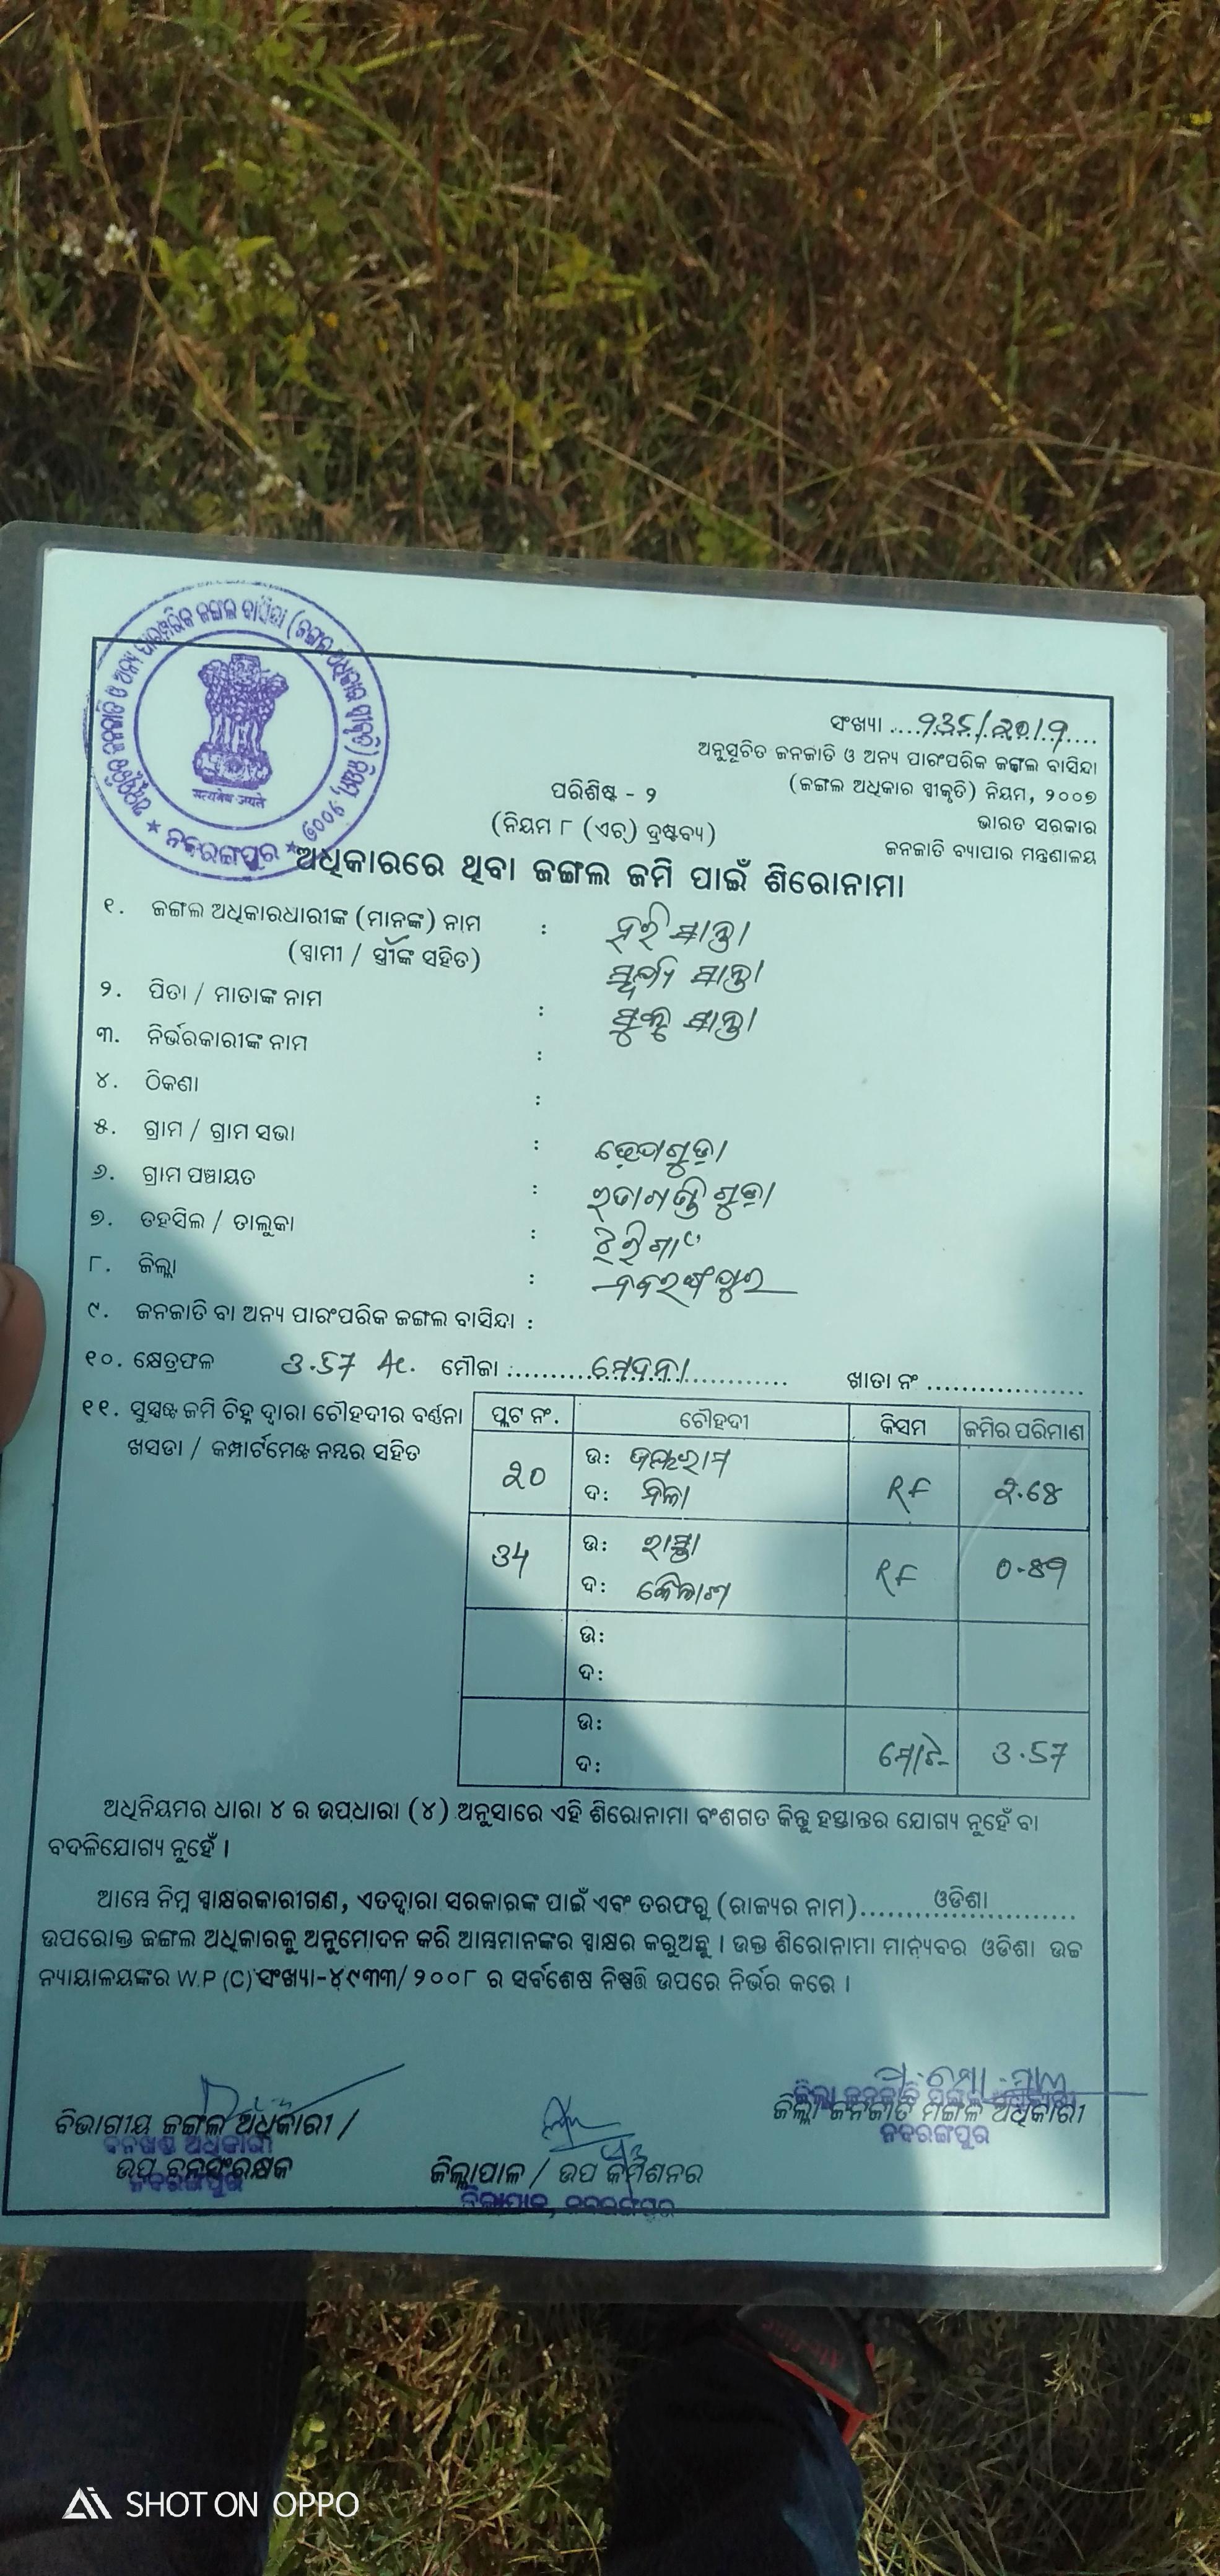 ସଂଖ୍ୟା ....୨35/2019....
ଅନୁସୂଚିତ ଜନଜାତି ଓ ଅନ୍ୟ ପାରଂପରିକ ଜଙ୍ଗଲ ବାସିନ୍ଦା
(ଜଙ୍ଗଲ ଅଧିକାର ସ୍ୱୀକୃତି) ନିୟମ, ୨୦୦୭
ଭାରତ ସରକାର
ଜନଜାତି ବ୍ୟାପାର ମନ୍ତ୍ରଣାଳୟ
ପରିଶିଷ୍ଟ - ୨
(ନିୟମ ୮ (ଏଚ୍) ଦ୍ରଷ୍ଟବ୍ୟ)
सत्यमेव जयते
ନବରଙ୍ଗପୁର
ଅଧିକାରରେ ଥିବା ଜଙ୍ଗଲ ଜମି ପାଇଁ ଶିରୋନାମା
୧. ଜଙ୍ଗଲ ଅଧିକାରଧାରୀଙ୍କ (ମାନଙ୍କ) ନାମ : ହରି ସାନ୍ତା
(ସ୍ୱାମୀ / ସ୍ତ୍ରୀଙ୍କ ସହିତ) ସାନ୍ତା
୨. ପିତା / ମାତାଙ୍କ ନାମ : ସାନ୍ତା
୩. ନିର୍ଭରକାରୀଙ୍କ ନାମ :
୪. ଠିକଣା :
୫. ଗ୍ରାମ / ଗ୍ରାମ ସଭା :
୬. ଗ୍ରାମ ପଞ୍ଚାୟତ :
୭. ତହସିଲ / ତାଲୁକା : ଝରିଗାଁ
୮. ଜିଲ୍ଲା : ନବରଙ୍ଗପୁର
୯. ଜନଜାତି ବା ଅନ୍ୟ ପାରଂପରିକ ଜଙ୍ଗଲ ବାସିନ୍ଦା :
୧୦. କ୍ଷେତ୍ରଫଳ 3.57 Ac. ମୌଜା ..... ମେଦନା ..... ଖାତା ନଂ ..................
୧୧. ସୁସ୍ପଷ୍ଟ ଜମି ଚିହ୍ନ ଦ୍ୱାରା ଚୌହଦୀର ବର୍ଣ୍ଣନା
ଖସଡା / କମ୍ପାର୍ଟମେଣ୍ଟ ନମ୍ବର ସହିତ
ପ୍ଲଟ ନଂ. ଚୌହଦୀ କିସମ ଜମିର ପରିମାଣ
20 ଉ: RF 2.68
ଦ: ନିଳା
34 ଉ: ରାସ୍ତା RF 0.89
ଦ: କୈଳାଶ
ଉ:
ଦ:
ଉ:
ଦ: ମୋଟ- 3.57
ଅଧିନିୟମର ଧାରା ୪ ର ଉପଧାରା (୪) ଅନୁସାରେ ଏହି ଶିରୋନାମା ବଂଶଗତ କିନ୍ତୁ ହସ୍ତାନ୍ତର ଯୋଗ୍ୟ ନୁହେଁ ବା
ବଦଳିଯୋଗ୍ୟ ନୁହେଁ ।
ଆମ୍ଭେ ନିମ୍ନ ସ୍ୱାକ୍ଷରକାରୀଗଣ, ଏତଦ୍ୱାରା ସରକାରଙ୍କ ପାଇଁ ଏବଂ ତରଫରୁ (ରାଜ୍ୟର ନାମ)........ଓଡିଶା........
ଉପରୋକ୍ତ ଜଙ୍ଗଲ ଅଧିକାରକୁ ଅନୁମୋଦନ କରି ଆମ୍ଭମାନଙ୍କର ସ୍ୱାକ୍ଷର କରୁଅଛୁ । ଉକ୍ତ ଶିରୋନାମା ମାନ୍ୟବର ଓଡିଶା ଉଚ୍ଚ
ନ୍ୟାୟାଳୟଙ୍କର W.P (C) ସଂଖ୍ୟା-୪୯୩୩/୨୦୦୮ ର ସର୍ବଶେଷ ନିଷ୍ପତ୍ତି ଉପରେ ନିର୍ଭର କରେ ।
ବିଭାଗୀୟ ଜଙ୍ଗଲ ଅଧିକାରୀ /
ଉପ ବନସଂରକ୍ଷକ
ବନଖଣ୍ଡ ଅଧିକାରୀ
ନବରଙ୍ଗପୁର
ଜିଲ୍ଲାପାଳ / ଉପ କମିଶନର
ଜିଲ୍ଲାପାଳ, ନବରଙ୍ଗପୁର
ଜିଲ୍ଲା ଜନଜାତି ମଙ୍ଗଳ ଅଧିକାରୀ
ନବରଙ୍ଗପୁର
SHOT ON OPPO